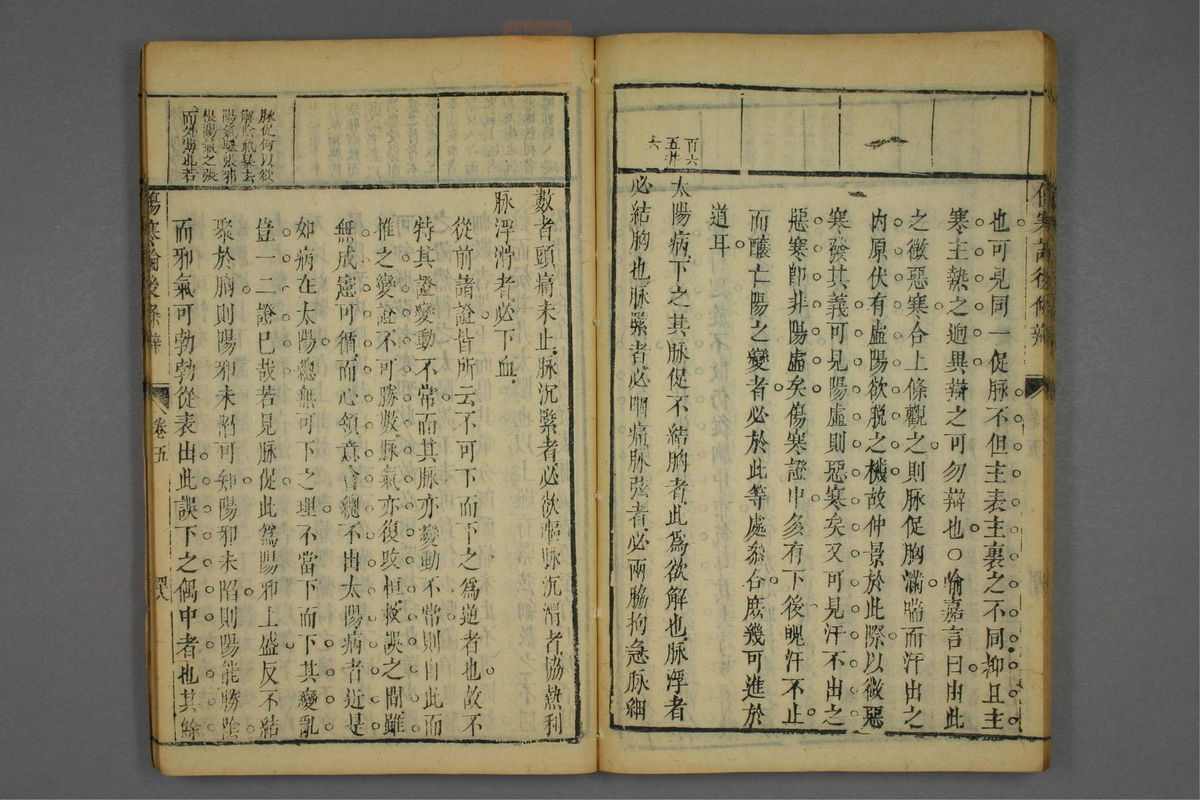 傷寒論後條辨
也可見同一促脉不但主表主裏之不同抑且主
寒主熱之迥異辯之可勿辯也○喻嘉言曰由此
之微惡寒合上條觀之則脉促胸滿喘而汗出之
內原伏有虛陽欲脫之機故仲景於此際以微惡
寒發其義可見陽虛則惡寒矣又可見汗不出之
惡寒卽非陽虛矣傷寒證中多有下後魄汗不止
而釀亡陽之變者必於此等處參合庶幾可進於
道耳
百六
六
太陽病下之其脉促不結胸者此爲欲解也脉浮者
必結胸也脉緊者必咽痛脉弦者必兩脇拘急脉細
數者頭痛未止脉沉緊者必欲嘔脉沉滑者協熱利
脉浮滑者必下血
從前諸證皆所云不可下而下之爲逆者也故不
特其證變動不常而其脉亦變動不常則自此而
推之變證不可勝數脉氣亦復跂桓故誤之間雖
無成憲可循而心領意會總不出太陽病者近是
如病在太陽總無可下之理不當下而下其變亂
豈一二證已哉若見脉促此爲陽邪上盛反不結
聚於胸則陽邪未陷可知陽邪未陷則陽能勝陰
而邪氣可勃勃從表出此誤下之偶中者也其餘
脉促何以欲
解陰氣暴去
陽氣驟張邪
根陽氣之張
而外薄此若
傷寒論後條辨
卷五